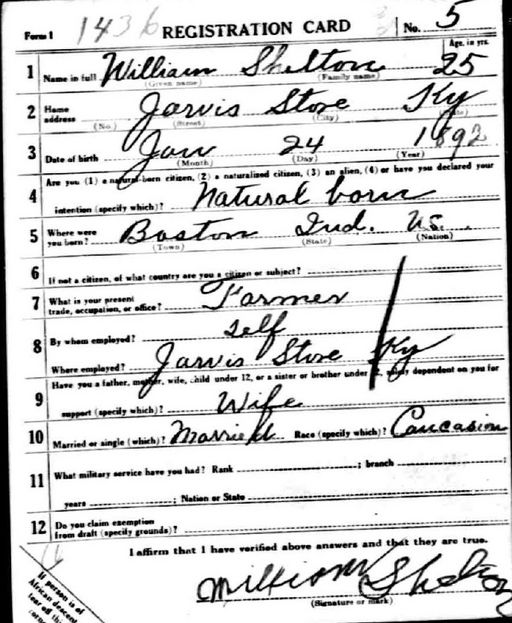 Form 1 1436 REGISTRATION CARD No. 5
Age, in yrs.
1 Name in full William Shelton 25
(Given name) (Family name)
2 Home address Jarvis Store Ky
(No.) (Street) (City)
3 Date of birth Jan 24 1892
(Month) (Day) (Year)
Are you (1) a natural-born citizen, (2) a naturalized citizen, (3) an alien, (4) or have you declared your
4 intention (specify which)? Natural born
5 Where were you born? Boston Ind. U.S.
(Town) (State) (Nation)
6 If not a citizen, of what country are you a citizen or subject?
7 What is your present trade, occupation, or office? Farmer
8 By whom employed? self
Where employed? Jarvis Store Ky
Have you a father, mother, wife, child under 12, or a sister or brother under 12, solely dependent on you for
9 support (specify which)? Wife
10 Married or single (which)? Married Race (specify which)? Caucasion
11 What military service have you had? Rank ; branch ;
years ; Nation or State
12 Do you claim exemption from draft (specify grounds)?
I affirm that I have verified above answers and that they are true.
William Shelton
(Signature or mark)
If person is of
African descent
tear off this